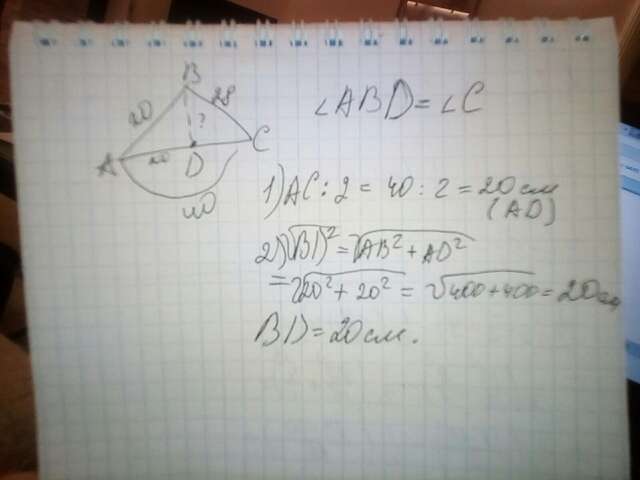 B
20
28
?
A
20
D
C
40
∠ABD = ∠C
1) AC : 2 = 40 : 2 = 20 см
(AD)
2) √BD² = √AB² + AD²
= √20² + 20² = √400 + 400 = 20 см
BD = 20 см.